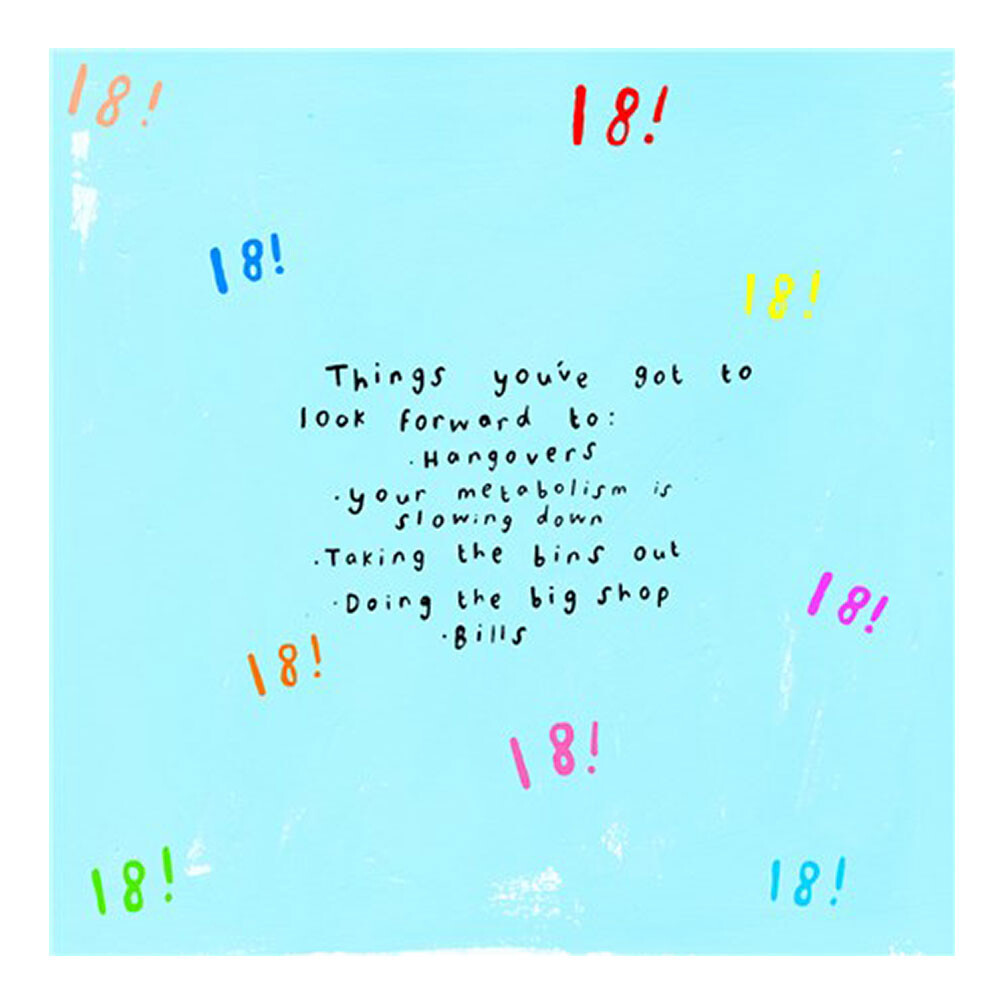 18!
18!
18!
18!
Things you've got to
look forward to:
·Hangovers
·your metabolism is
slowing down
·Taking the bins out
·Doing the big shop
·Bills
18!
18!
18!
18!
18!